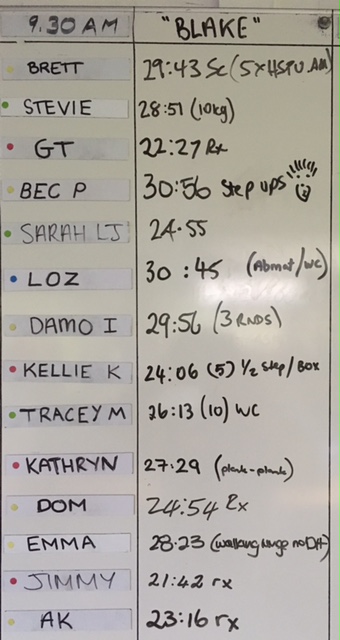 9.30 AM "BLAKE"
BRETT 29:43 Sc (5xHSPU.AM)
STEVIE 28:51 (10kg)
GT 22:27 Rx
BEC P 30:56 Step ups
SARAH LJ 24.55
LOZ 30:45 (Abmat/WC)
DAMO I 29:56 (3 RNDS)
KELLIE K 24:06 (5) 1/2 Step/Box
TRACEY M 26:13 (10) WC
KATHRYN 27:29 (plank-plank)
DOM 24:54 Rx
EMMA 28:23 (walking lunge no DH)
JIMMY 21:42 rx
AK 23:16 rx